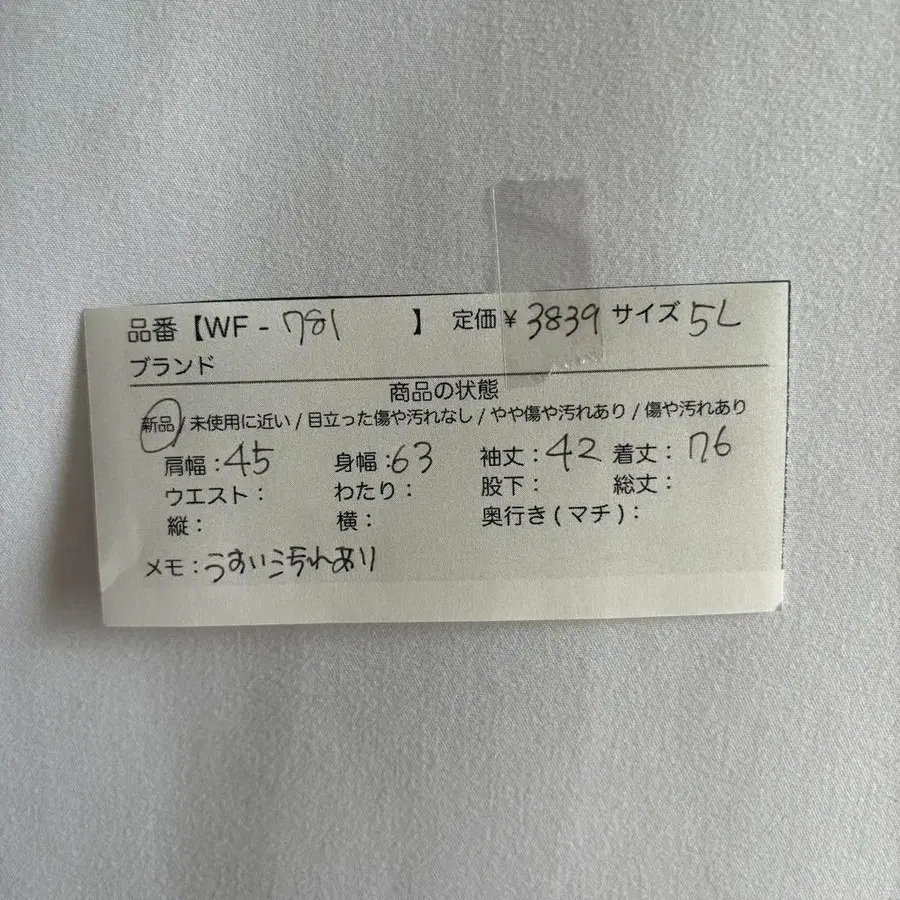 品番【WF - 781 】 定価¥ 3839 サイズ 5L
ブランド
商品の状態
新品 / 未使用に近い / 目立った傷や汚れなし / やや傷や汚れあり / 傷や汚れあり
肩幅:45 身幅:63 袖丈:42 着丈:76
ウエスト: わたり: 股下: 総丈:
縦: 横: 奥行き(マチ):
メモ:うすいよごれあり